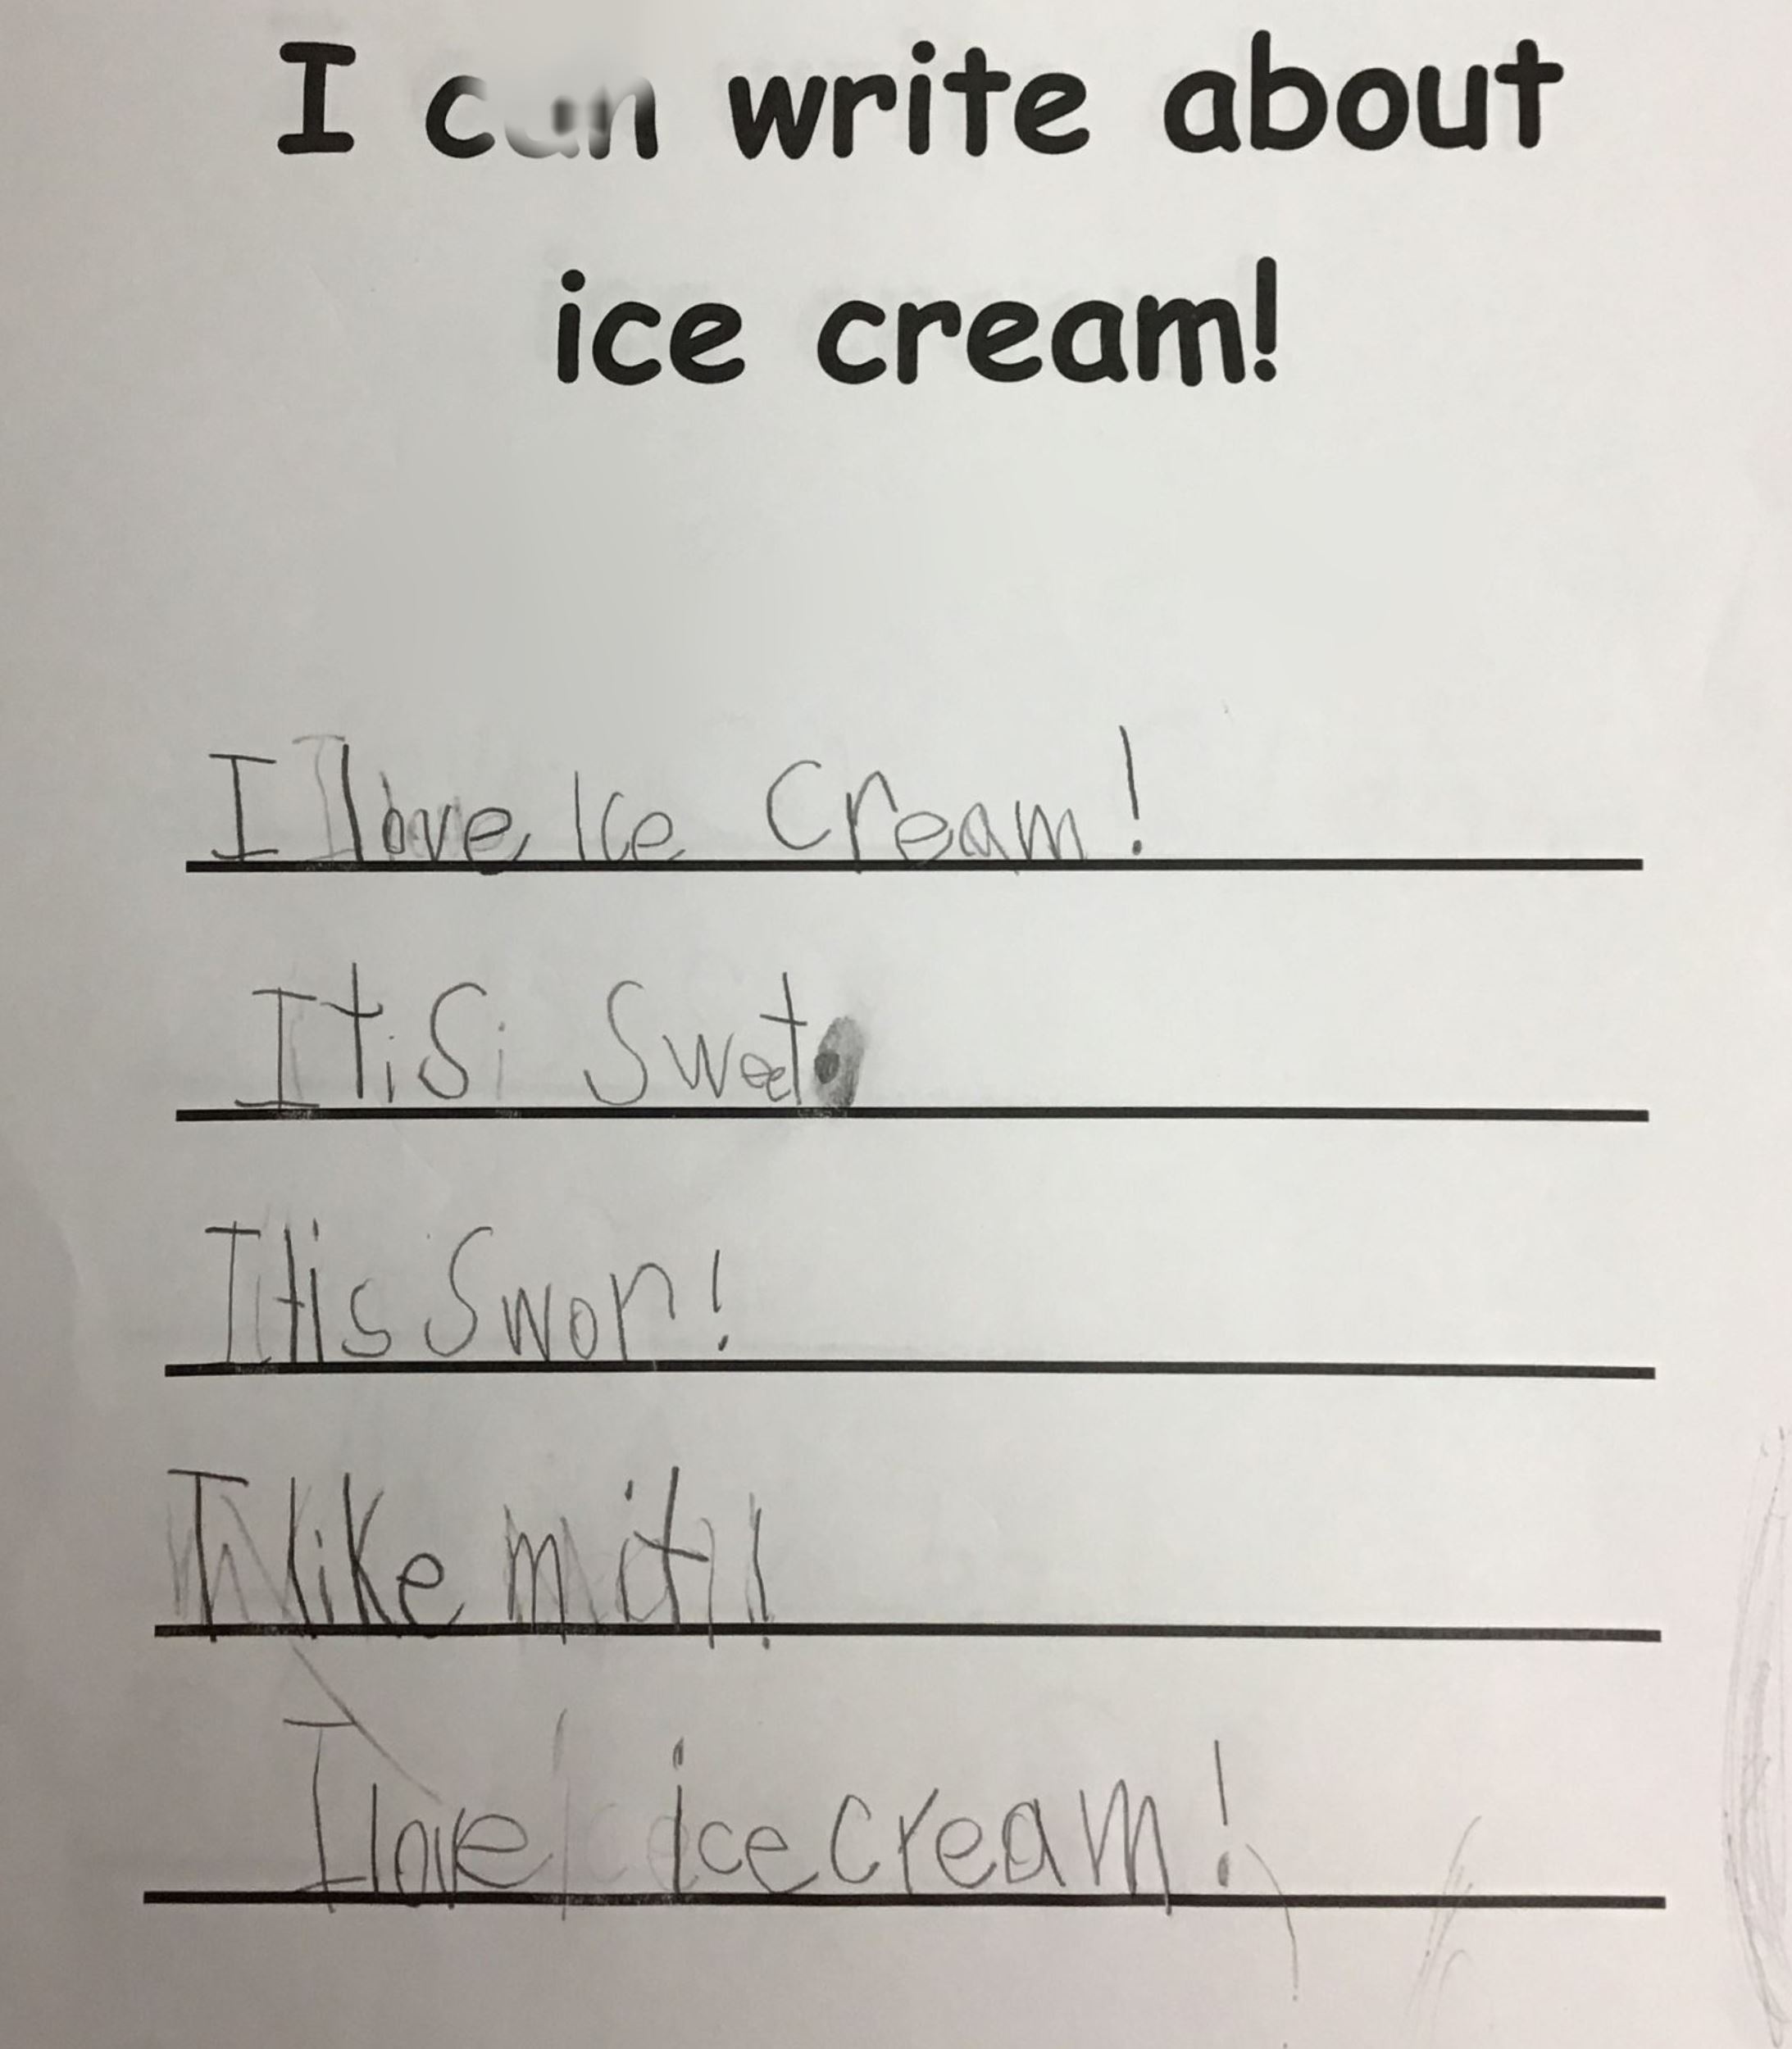 I can write about
ice cream!
I love Ice Cream!
It is Sweet.
It is Swor!
I like mit!
I love ice cream!